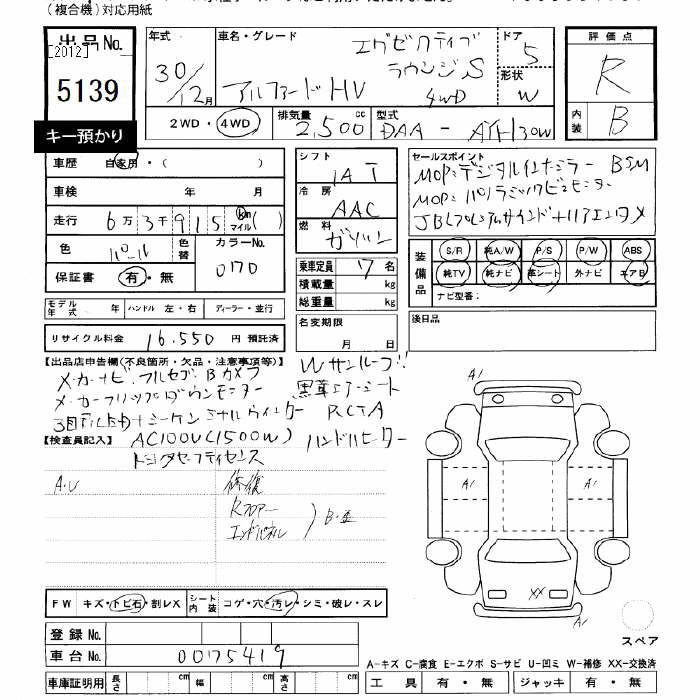 (複合機)対応用紙
出品No.
[2012]
5139
キー預かり
年式
30/12月
車名・グレード
アルファードHV
エグゼクティブ
ラウンジS
4WD
ドア
5
形状
W
評価点
R
内装
B
2WD・4WD
排気量 2,500 cc
型式 DAA - AYH30W
車歴 自家用・( )
車検 年 月
走行 6万3千915 km マイル( )
色 パール
色替
カラーNo. 070
保証書 有・無
シフト IAT
冷房 AAC
燃料 ガソリン
乗車定員 7名
積載量 kg
総重量 kg
セールスポイント
MOP:デジタルインナーミラー BSM
MOP:パノラミックビューモニター
JBLプレミアムサウンド+リアエンタメ
装備品
S/R 純A/W P/S P/W ABS
純TV 純ナビ 革シート 外ナビ エアB
ナビ型番:
モデル年式 年 ハンドル 左・右 ディーラー・並行
リサイクル料金 16,550 円 預託済
名変期限 月 日
後日品
【出品店申告欄(不良箇所・欠品・注意事項等)】
Wサンルーフ!!
メーカーナビ フルセグ Bカメラ
黒革エアーシート
メーカーフリップダウンモニター
3眼LEDナシーケンシャルウィンカー RCTA
【検査員記入】
AC100V(1500W) ハンドルヒーター
トヨタセーフティセンス
A・U
修復
Rフロアー
エンドパネル
) B・歪
A1
A1
A1
XX
A1
FW キズ・トビ石・割レX
シート内装 コゲ・穴・汚レ・シミ・破レ・スレ
登録No.
車台No. 0075419
スペア
A-キズ C-腐食 E-エクボ S-サビ U-凹ミ W-補修 XX-交換済
車庫証明用 長さ 幅 高さ
工具 有・無 ジャッキ 有・無